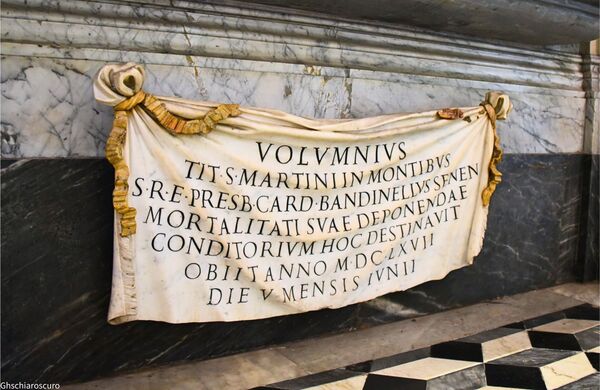 VOLVMNIVS
TIT·S·MARTINI IN MONTIBVS
S·R·E·PRESB·CARD·BANDINELIVS SENEN
MORTALITATI SVAE DEPONENDAE
CONDITORIVM HOC DESTINAVIT
OBIIT ANNO M·DC·LXVII
DIE V MENSIS IVNII
Ghschiaroscuro